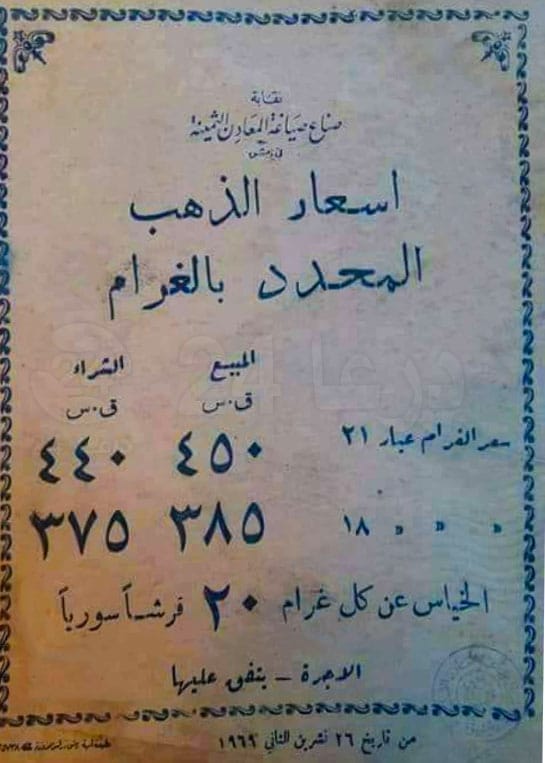 نقابة
صناع صياغة المعادن الثمينة
في دمشق
اسعار الذهب
المحدد بالغرام
المبيع الشراء
ق.س ق.س
سعر الغرام عيار ٢١ ٤٥٠ ٤٤٠
» » » ١٨ ٣٨٥ ٣٧٥
الخياس عن كل غرام ٢٠ قرشاً سورياً
الاجرة - يتفق عليها
من تاريخ ٢٦ تشرين الثاني ١٩٦٩
درعا 24